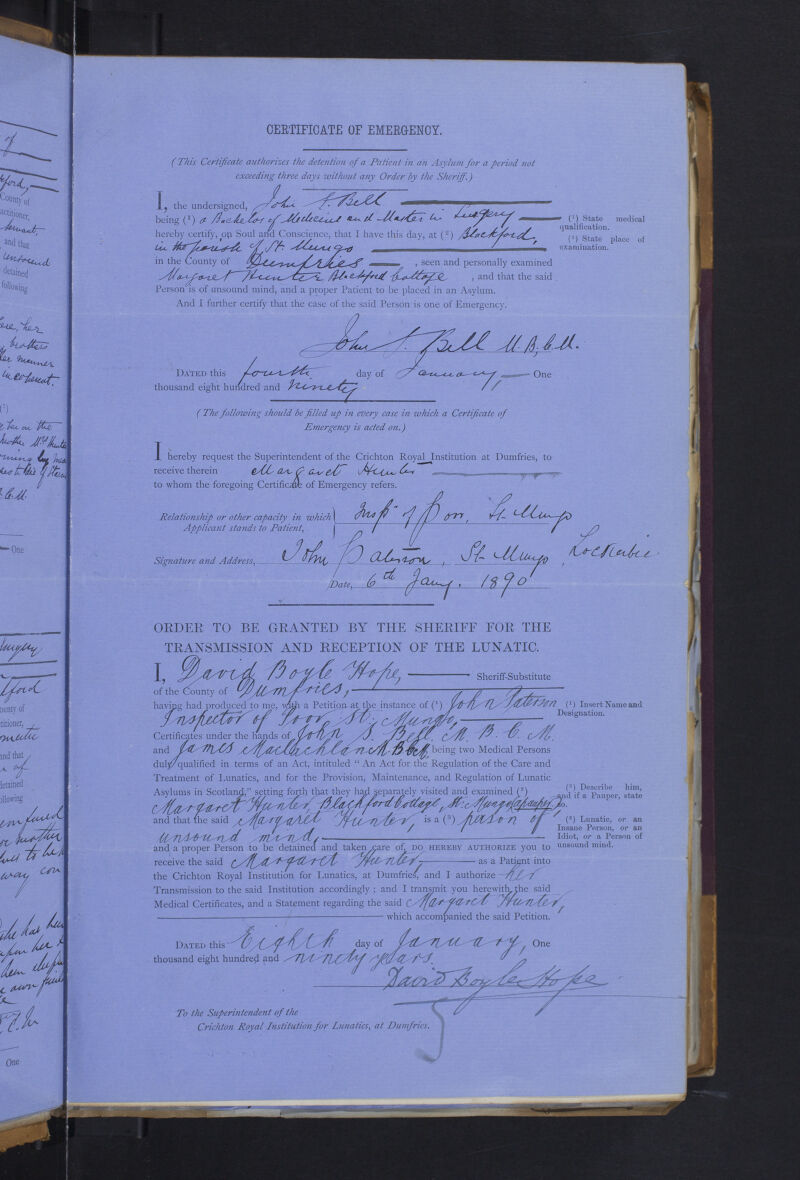 CERTIFICATE OF EMERGENCY.
(This Certificate authorizes the detention of a Patient in an Asylum for a period not
exceeding three days without any Order by the Sheriff.)
I, the undersigned, John S. Bell
being (¹) a Bachelor of Medicine and Master in Surgery
(¹) State medical
qualification.
hereby certify, on Soul and Conscience, that I have this day, at (²) Blackford,
(²) State place of
examination.
in the parish of St. Mungo
in the County of Dumfries, seen and personally examined
Margaret Hunter Blackford Cottage, and that the said
Person is of unsound mind, and a proper Patient to be placed in an Asylum.
And I further certify that the case of the said Person is one of Emergency.
John S. Bell M.B., C.M.
DATED this fourth day of January, One
thousand eight hundred and Ninety
(The following should be filled up in every case in which a Certificate of
Emergency is acted on.)
I hereby request the Superintendent of the Crichton Royal Institution at Dumfries, to
receive therein Margaret Hunter
to whom the foregoing Certificate of Emergency refers.
Relationship or other capacity in which
Applicant stands to Patient,
Insp. of Poor, St. Mungo
Signature and Address, John Paterson, St. Mungo, Lockerbie
Date, 6th Jany. 1890
ORDER TO BE GRANTED BY THE SHERIFF FOR THE
TRANSMISSION AND RECEPTION OF THE LUNATIC.
I, David Boyle Hope, Sheriff-Substitute
of the County of Dumfries,
having had produced to me, with a Petition at the instance of (¹) John Paterson
(¹) Insert Name and
Designation.
Inspector of Poor St. Mungo,
Certificates under the hands of John S. Bell. M. B. C. M.
and James Maclachlan M.B. C.M. being two Medical Persons
duly qualified in terms of an Act, intituled "An Act for the Regulation of the Care and
Treatment of Lunatics, and for the Provision, Maintenance, and Regulation of Lunatic
Asylums in Scotland," setting forth that they had separately visited and examined (²)
(²) Describe him,
and if a Pauper, state
so.
Margaret Hunter, Blackford Cottage, St. Mungo (a pauper),
and that the said Margaret Hunter, is a (³) person of
(³) Lunatic, or an
Insane Person, or an
Idiot, or a Person of
unsound mind.
unsound mind,
and a proper Person to be detained and taken care of, DO HEREBY AUTHORIZE you to
receive the said Margaret Hunter, as a Patient into
the Crichton Royal Institution for Lunatics, at Dumfries, and I authorize her
Transmission to the said Institution accordingly; and I transmit you herewith the said
Medical Certificates, and a Statement regarding the said Margaret Hunter,
which accompanied the said Petition.
DATED this Eighth day of January, One
thousand eight hundred and ninety years.
David Boyle Hope
To the Superintendent of the
Crichton Royal Institution for Lunatics, at Dumfries.